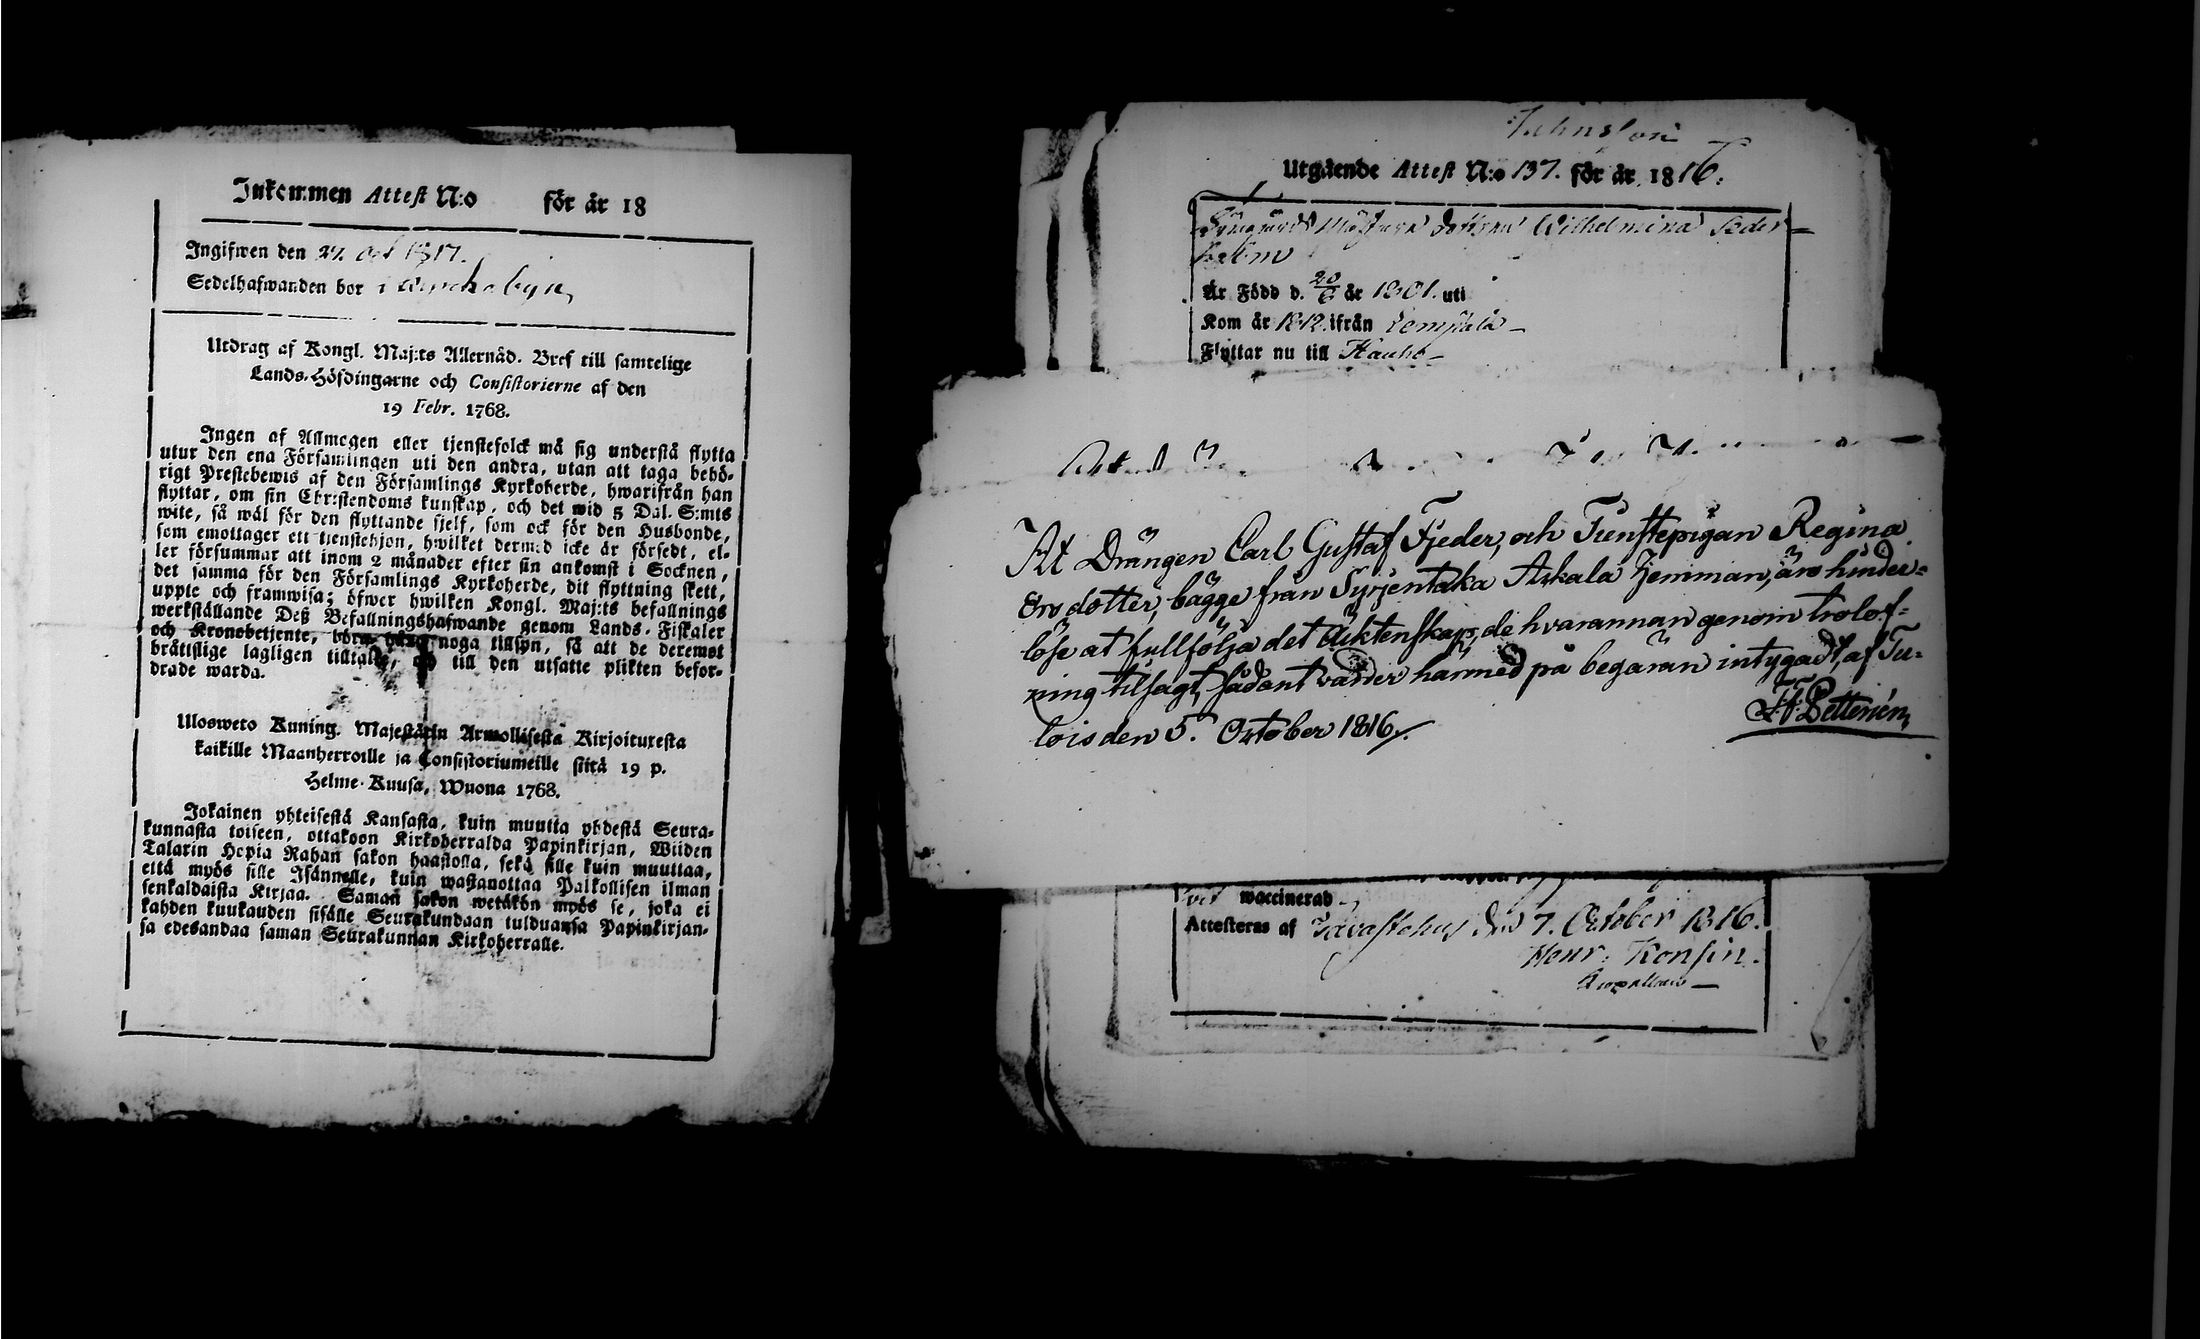 Inkommen Attest N:o för år 18
Ingifwen den 27. Oct 1817.
Sedelhafwanden bor i
Utdrag af Kongl. Maj:ts Allernåd. Bref till samtelige
Lands-Höfdingarne och Consistorierne af den
19 Febr. 1768.
Ingen af Allmogen eller tjenstefolck må sig understå flytta
utur den ena Församlingen uti den andra, utan att taga behö-
rigt Prestebewis af den Församlings Kyrkoherde, hwarifrån han
flyttar, om sin Christendoms kunskap, och det wid 5 Dal. S:mts
wite, så wäl för den flyttande sjelf, som ock för den Husbonde,
som emottager ett tienstehjon, hwilket dermed icke är försedt, el-
ler försummar att inom 2 månader efter sin ankomst i Socknen,
det samma för den Församlings Kyrkoherde, dit flyttning skett,
uppte och framwisa; öfwer hwilken Kongl. Maj:ts befallnings
werkställande Deß Befallningshafwande genom Lands-Fiskaler
och Kronobetjente, böra noga tillsyn, så att de deremot
bråttslige lagligen tilltalas, och till den utsatte plikten befor-
drade warda.
Ulosweto Kuning. Majestätin Armollisesta Kirjoituxesta
kaikille Maanherroille ja Consistoriumeille siitä 19 p.
Helme-Kuusa, Wuona 1768.
Jokainen yhteisestä Kansasta, kuin muutta yhdestä Seura-
kunnasta toiseen, ottakoon Kirkoherralda Papinkirjan, Wiiden
Talarin Hopia Rahan sakon haastolla, sekä sille kuin muuttaa,
että myös sille Isännelle, kuin wastanottaa Palkollisen ilman
senkaldaista Kirjaa. Saman sakon wetäkön myös se, joka ei
kahden kuukauden sisälle Seurakundaan tulduansa Papinkirjan-
sa edesandaa saman Seurakunnan Kirkoherralle.
Utgående Attest N:o 137. för år 1816.
dottren Wilhelmina Seder-
holm
Är Född d. 20/6 år 1801. uti
Kom år 1812. ifrån Lempälä
Flyttar nu till Hauho
At Drängen Carl Gustaf Fjeder, och Tienstepigan Regina
Ersdotter, bägge från Syrjentaka Askala Hemman, äro hinder-
löse at fullfölja det Äktenskap, de hvarannan genom trolof-
ning tilsagt, sådant varder härmed på begäran intygadt, af Tu-
lois den 5. October 1816.
F. Pettersén,
waccinerad
Attesteras af Tavastehus den 7. October 1816.
Henr. Konsin.